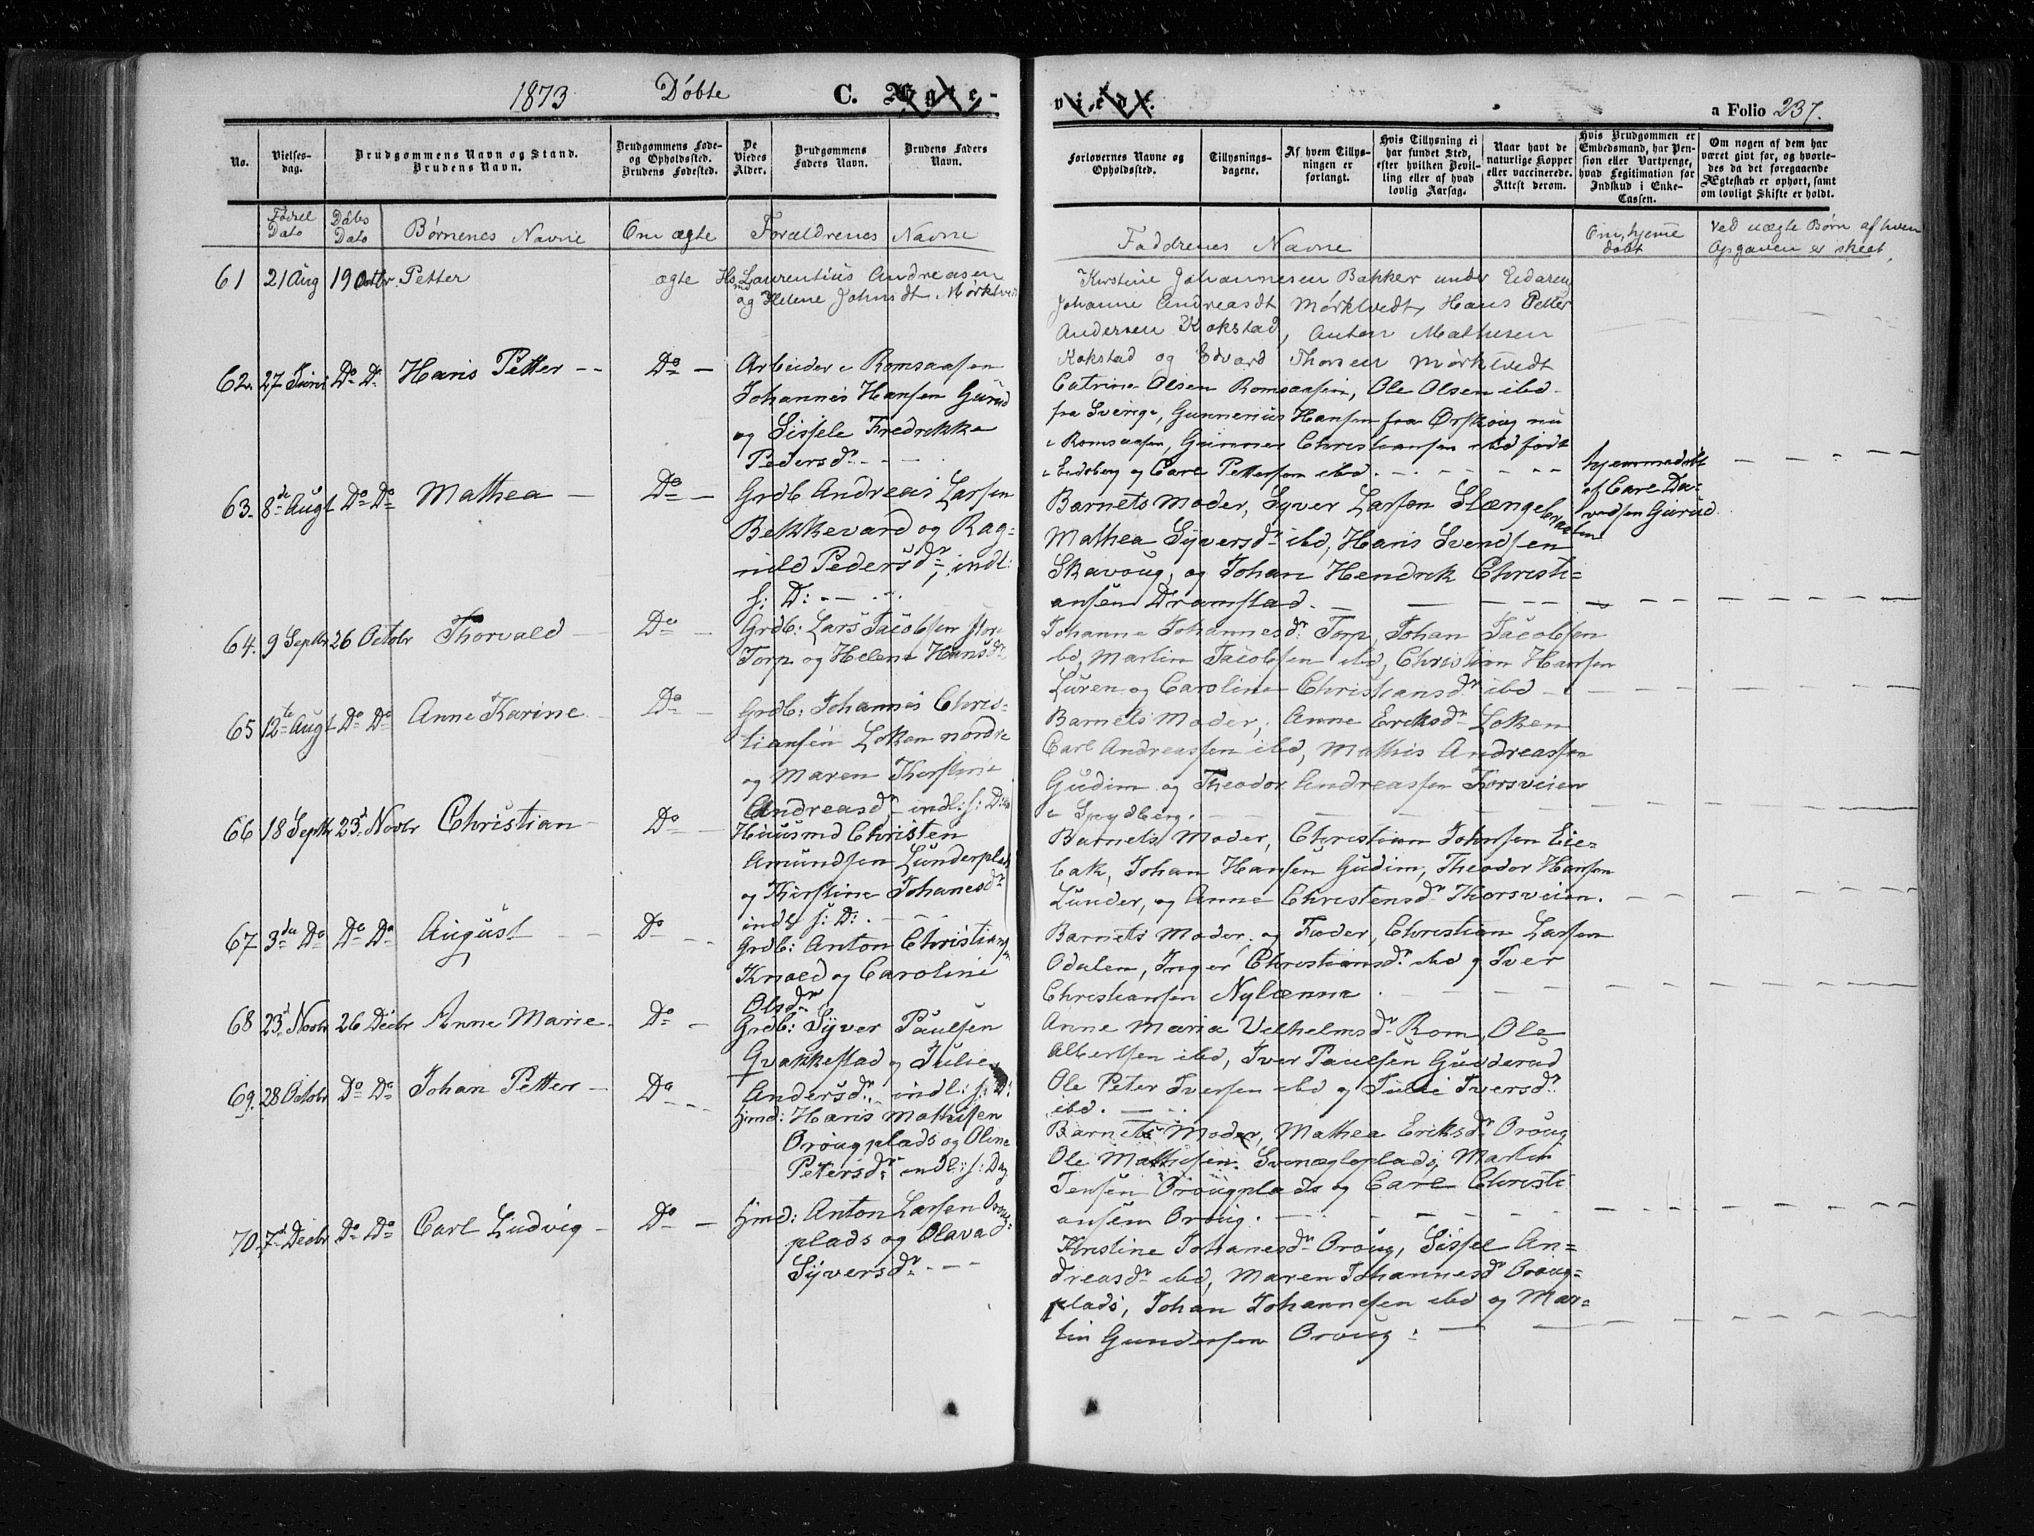 1873 Döbte C. Ægte-
viede.
a Folio 237.
No.
Vielses-
dag.
Brudgommens Navn og Stand.
Brudens Navn.
Brudgommens Føde-
og Opholdssted.
Brudens Fødested.
De
Viedes
Alder.
Brudgommens
Faders Navn.
Brudens Faders
Navn.
Forlovernes Navne og
Opholdssted.
Tillysnings-
dagene.
Af hvem Tillys-
ningen er
forlangt.
Hvis Tillysning ei
har fundet Sted,
efter hvilken Bevil-
ling eller af hvad
lovlig Aarsag.
Naar havt de
naturlige Kopper
eller vaccinerede.
Attest derom.
Hvis Brudgommen er
Embedsmand, har Pen-
sion eller Vartpenge,
hvad Legitimation for
Indskud i Enke-
Cassen.
Om nogen af dem har
været gift før, og hvorle-
des da det foregaaende
Ægteskab er ophørt, samt
om lovligt Skifte er holdt.
Födsel
Dato
Döbs
Dato
Börnenes Navne
Om ægte
Forældrenes Navne
Faddrenes Navne
Om hjeme
döbt
Ved uægte Börn af hvem
Opgaven er skeet.
61 21 Aug 19 Octbr. Petter ægte Laurentius Andreasen
og Helene Johnsdt. Mörktvedt
Kirstine Johannesen Bakker under
Johanne Andreasdt Mörktvedt, Hans Petter
Andersen Kokstad, Anton Mathisen
Kokstad og Edvard Thorsen Mörktvedt
62. 27 Juni Do Do Hans Petter -- Do - Arbeider i Romsaasen
Johannes Hansen Gurud
og Sissele Fredrikke
Pedersdr. - -
Catrine Olsen Romsaasen, Ole Olsen ibd.
fra Sverige, Gunnerius Hansen fra Ørskoug nu
i Romsaasen, Gunner Christiansen ibd födt
i Eidsberg og Carl Pettersen ibd.
63. 8de Augt Do Do Mathea - Do - Grdb Andreas Larsen
Bekkevard og Rag-
nild Pedersdr, indl:
f: D: - -
Barnets Moder, Syver Larsen Slængebraaten
Mathea Syversdr ibd, Hans Svendsen
Skavoug, og Johan Hendrik Christi-
ansen Dramstad.
hjemmedöbt
af Carl Da-
vidsen Gurud.
64. 9 Septbr 26 Octobr Thorvald - Do - Grdb: Lars Jacobsen store
Torp og Helene Hansdr
Johanne Johannesdr Torp, Johan Jacobsen
ibd, Martin Jacobsen ibd, Christian Hansen
Luren og Caroline Christiansdr ibd -
65 12te Augt Do Do Anne Karine Do - Grdb: Johannes Chris-
tiansen Löken nordre
og Maren Kirstine
Andreasdr indl: f: D:
Barnets Moder, Anne Eriksdr Löken
Carl Andreassen ibd, Mathis Andreassen
Gudim og Theodor Andreassen Torsveien
i Spydberg.
66 18 Septbr 23d Novbr Christian - Do - Huusmd Christen
Amundsen Lunderplads
og Kirstine Johanesdr
indl f: D:
Barnets Moder, Christian Johnsen Eie-
bak, Johan Hansen Gudim, Theodor Hansen
Lunder, og Anne Christensdr Thorsveien.
67 3die Do Do Do August Do Grdb: Anton Christians
Knold og Caroline
Olsdr
Barnets Moder og Fader, Christian Larsen
Odalen, Inger Christiansdr ibd og Iver
Christiansen Nylænne
68 23d Novbr 26 Decbr Anne Marie Do - Grdb: Syver Paulsen
Qvakkestad og Julie
Andersdr, indl: f: D:
Anne Maria Vilhelmsdr Rom, Ole
Albertsen ibd, Iver Paulsen Gudderud
Ole Peter Iversen ibd og Julie Iversdr
ibd.
69. 28 Octobr Do Do Johan Petter - Do Hmd: Hans Mathisen
Orougplads og Oline
Petersdr indl: f: Dag
Barnets Moder, Mathea Eriksdr Oroug
Ole Mathisen Svenægleplads, Martin
Jensen Orougplads og Carl Christi
ansen Oroug.
70. 7d Decbr Do Do Carl Ludvig - Do - Hmd: Anton Larsen Oroug-
plads og Olava
Syversdr
Kristine Johanesdr Oroug, Sissel An-
dreasdr ibd, Maren Johannesdr Oroug-
plads, Johan Johannesen ibd og Mar-
tin Gundersen Oroug.